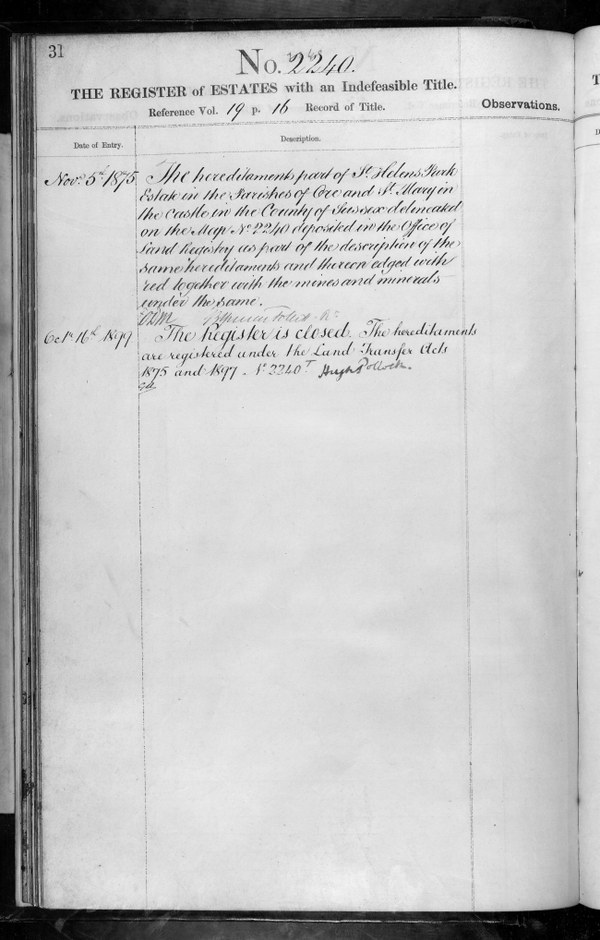 31
No. 2240.
THE REGISTER of ESTATES with an Indefeasible Title.
Reference Vol. 19 p. 16 Record of Title.
Observations.
Date of Entry.
Description.
Novr. 5th 1875
The hereditaments part of St. Helens Park
Estate in the Parishes of Ore and St. Mary in
the Castle in the County of Sussex delineated
on the Map No 2240 deposited in the Office of
Land Registry as part of the description of the
same hereditaments and thereon edged with
red together with the mines and minerals
under the same.
Octr 16th 1899
The Register is closed. The hereditaments
are registered under the Land Transfer Acts
1875 and 1897. No 2240 T Hugh Pollock.